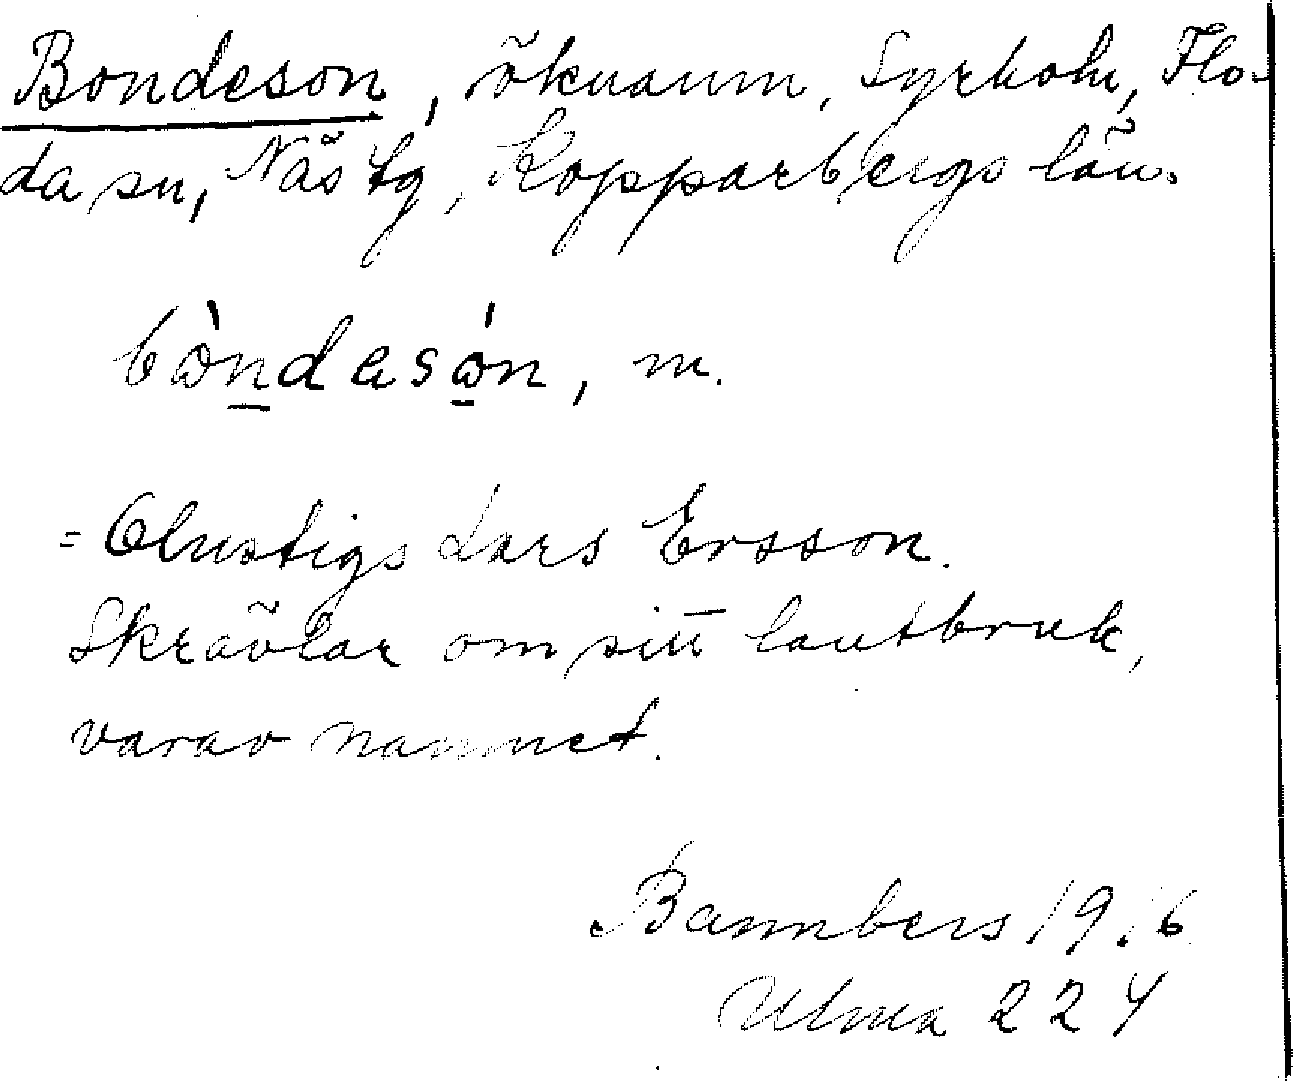 Bondeson, öknamn, Syrholn, Flo-
da sn, Näs tg, Kopparbergs län.
bòndesón, m.
= Olustigs Lars Ersson.
Skrävlar om sitt lantbruk,
varav namnet.
Bannbers 1916
Ulma 224